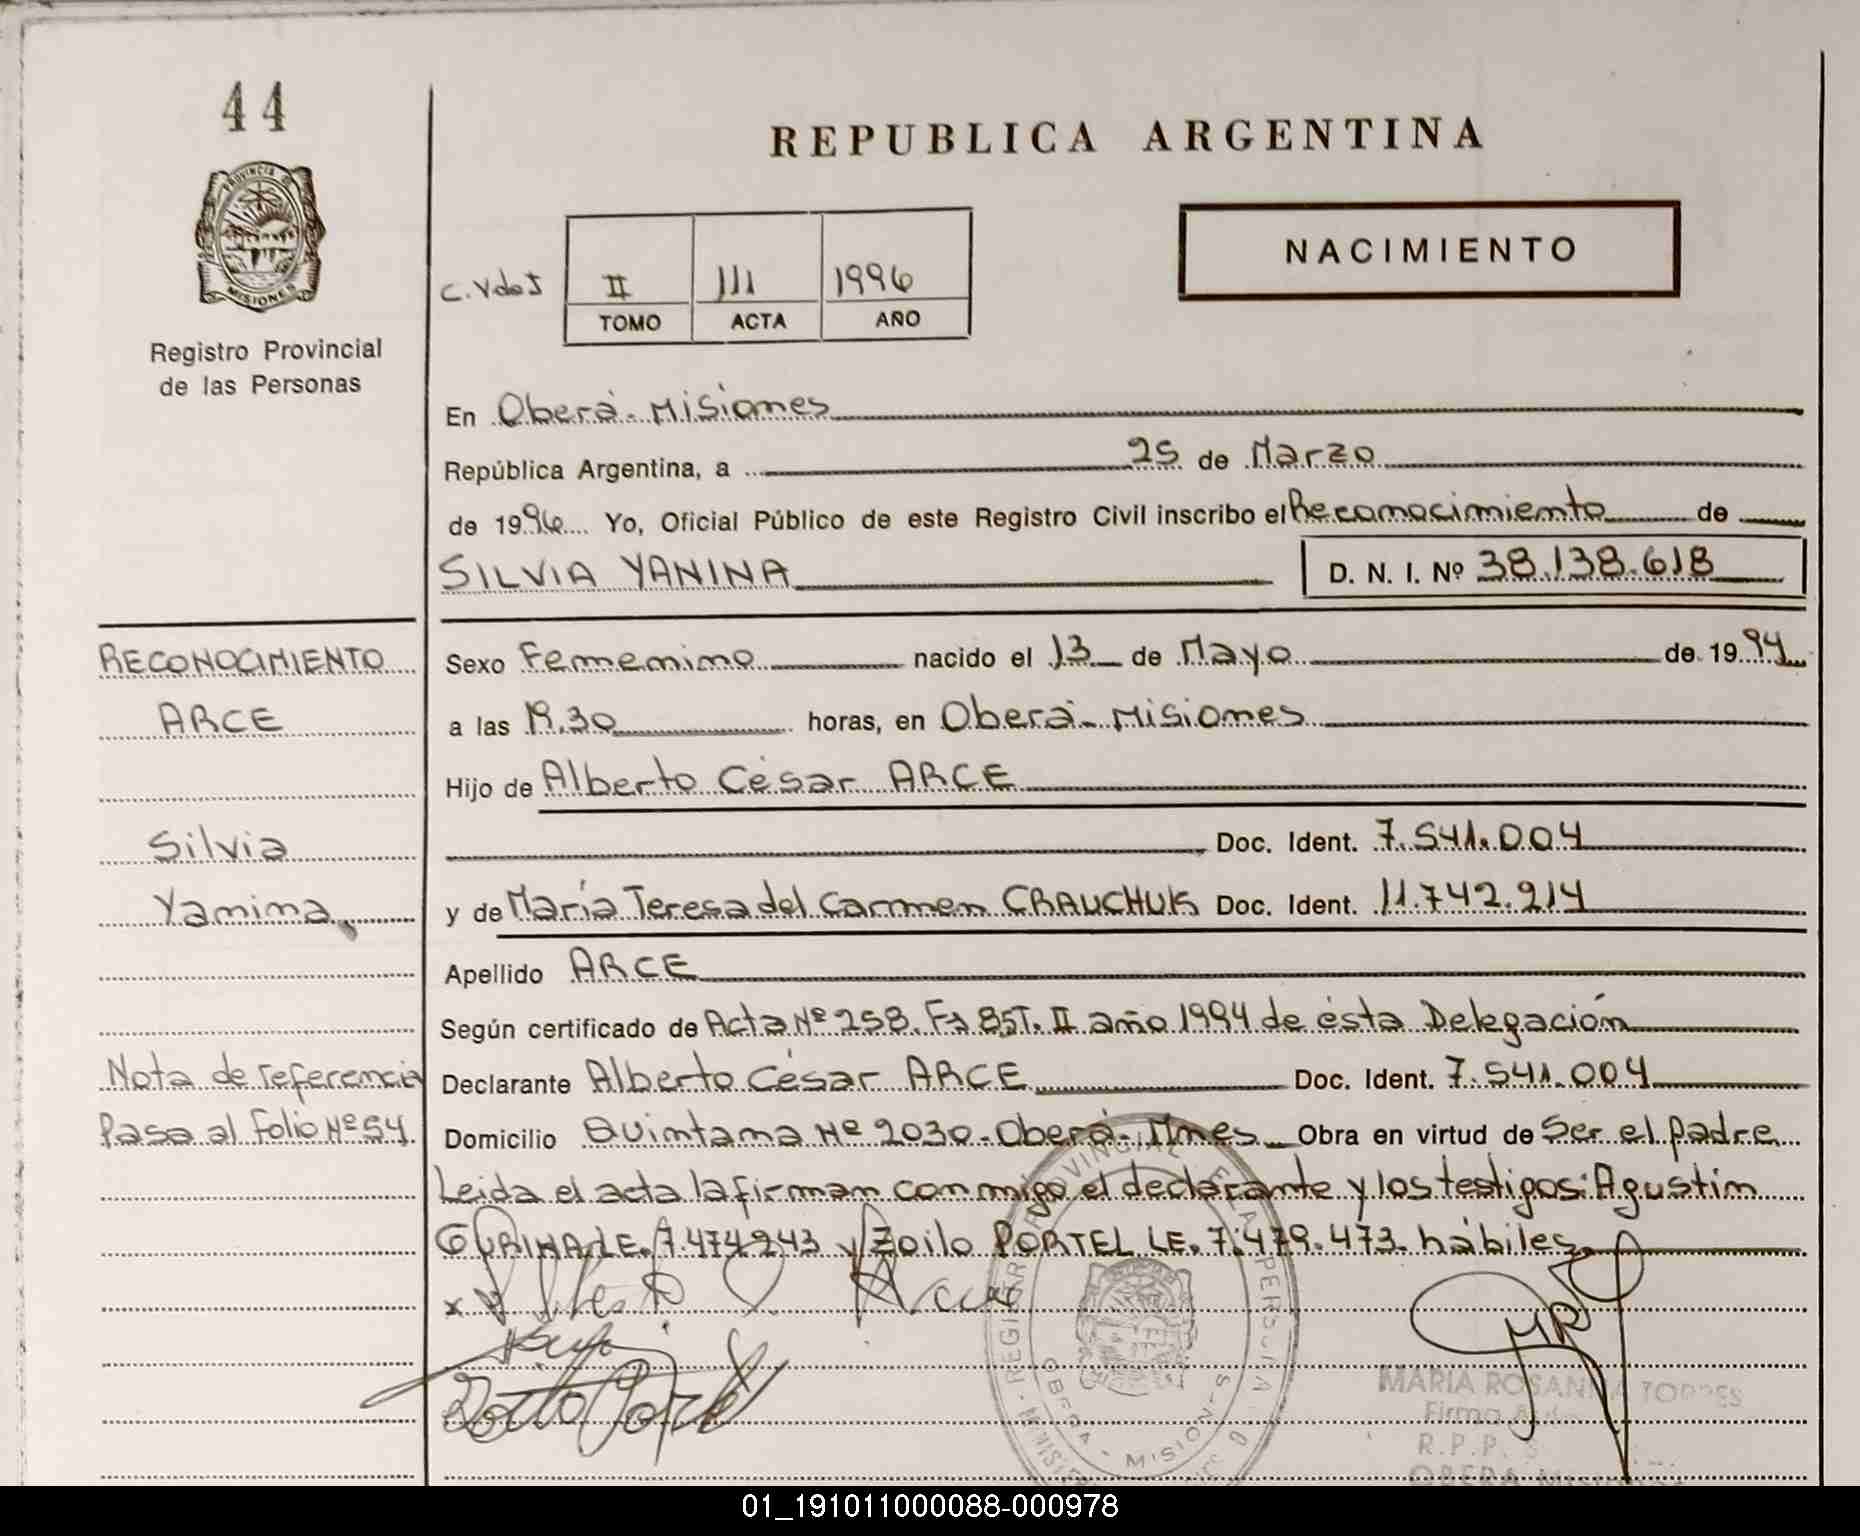 44
REPUBLICA ARGENTINA
PROVINCIA D
MISIONES
Registro Provincial
de las Personas
NACIMIENTO
C.VdoJ
II 111 1996
TOMO ACTA AÑO
En Oberá - Misiones
República Argentina, a 25 de Marzo
de 1996 Yo, Oficial Público de este Registro Civil inscribo el Reconocimiento de
SILVIA YANINA D. N. I. Nº 38.138.618
RECONOCIMIENTO
ARCE
Silvia
Yanina
Nota de referencia
Pasa al Folio Nº 54.
Sexo Femenino nacido el 13 de Mayo de 1994
a las 19.30 horas, en Oberá - Misiones
Hijo de Alberto César ARCE
Doc. Ident. 7.541.004
y de María Teresa del Carmen CRAUCHUK Doc. Ident. 11.742.214
Apellido ARCE
Según certificado de Acta Nº 258. Fº 85 T. II año 1994 de ésta Delegación
Declarante Alberto César ARCE Doc. Ident. 7.541.004
Domicilio Quintana Nº 2030 - Oberá - Mnes Obra en virtud de Ser el padre
Leida el acta la firman conmigo el declarante y los testigos: Agustin
LE. 7.474243 y Zoilo PORTEL LE. 7.479.473. hábiles.
MARIA ROSANNA TORRES
Firma
R.P.P.
OBERA Misiones
01_191011000088-000978